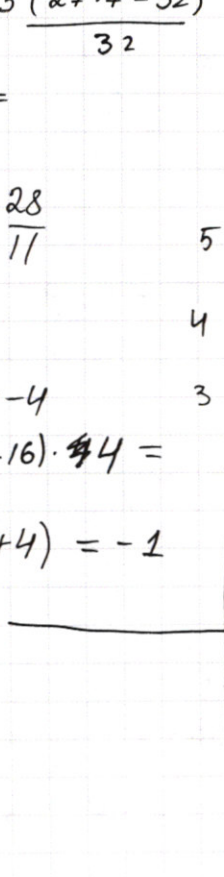 32
=
28
11
5
4
-4
3
16) · 4 =
+4) = -1